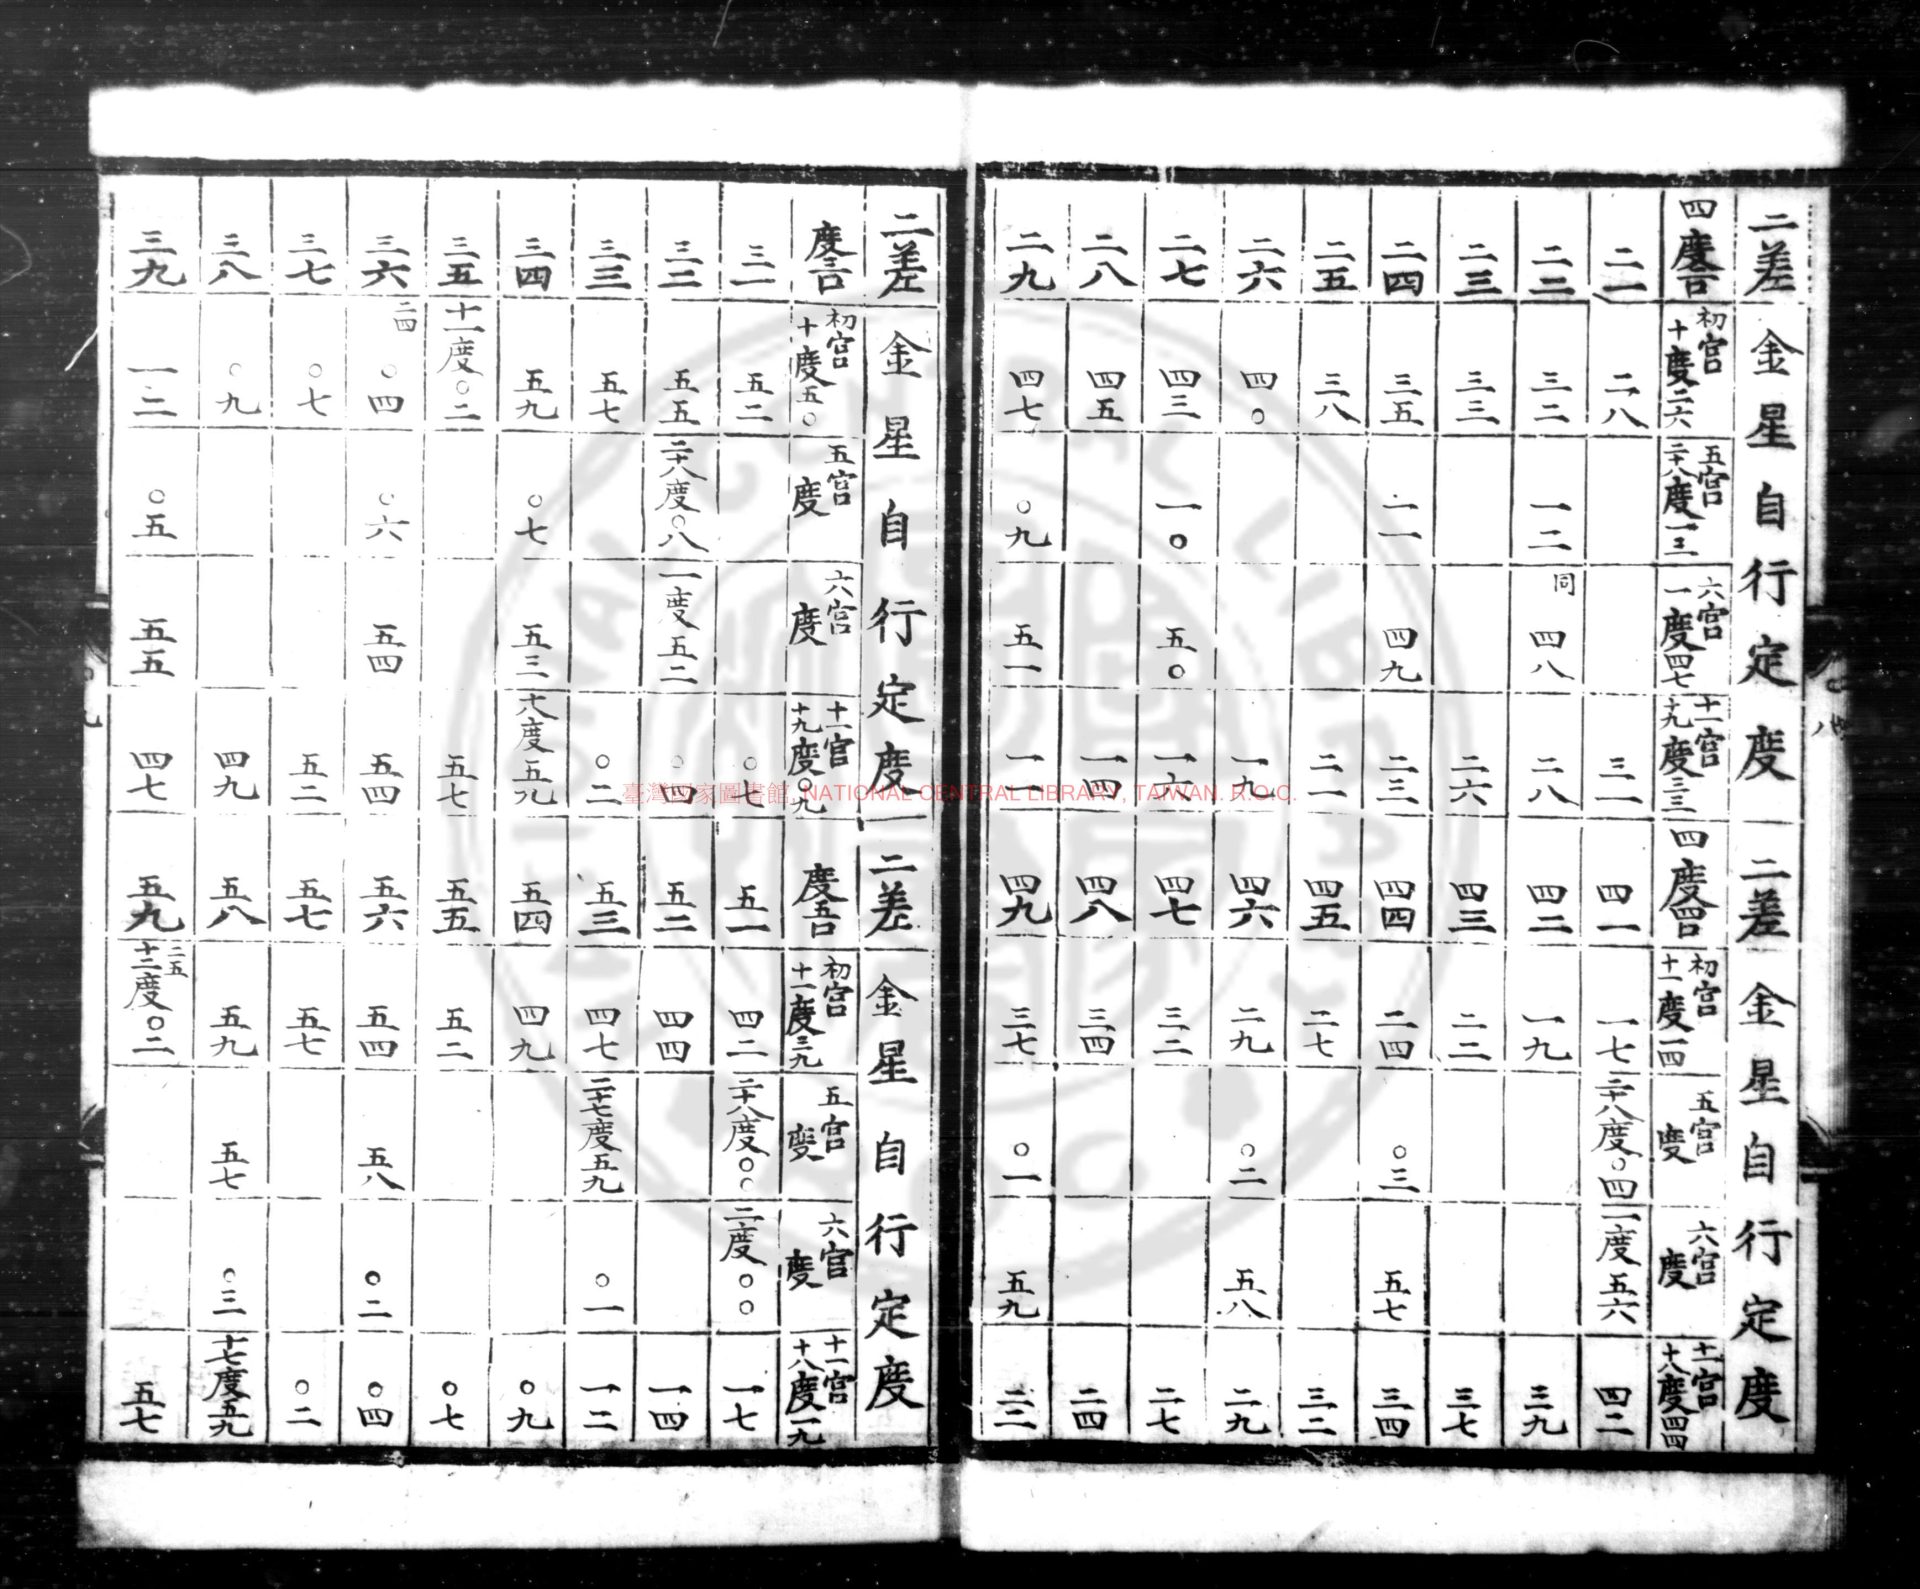 二差 金星自行定度 二差 金星自行定度
四度二〇 初宮十度二六 五宮二十八度一三 六宮一度四七 十一宮十九度三三 四度四〇 初宮十一度一四 五宮度 六宮度 十一宮十八度四四
二一 二八 三一 四一 一七 二十八度〇四 一度五六 四二
二二 三二 一二 同 四八 二八 四二 一九 三九
二三 三三 二六 四三 二二 三七
二四 三五 一一 四九 二三 四四 二四 〇三 五七 三四
二五 三八 二一 四五 二七 三二
二六 四〇 一九 四六 二九 〇二 五八 二九
二七 四三 一〇 五〇 一六 四七 三二 二七
二八 四五 一四 四八 三四 二四
二九 四七 〇九 五一 一一 四九 三七 〇一 五九 二二
二差 金星自行定度 二差 金星自行定度
度三〇 初宮十度五〇 五宮度 六宮度 十一宮十九度〇九 度五〇 初宮十一度三九 五宮度 六宮度 十一宮十八度一九
三一 五二 〇七 五一 四二 二十八度〇〇 二度〇〇 一七
三二 五五 二十八度〇八 一度五二 〇四 五二 四四 一四
三三 五七 〇二 五三 四七 二十七度五九 〇一 一二
三四 五九 〇七 五三 十八度五九 五四 四九 〇九
三五 十一度〇二 五七 五五 五二 〇七
三六 二四 〇四 〇六 五四 五四 五六 五四 五八 〇二 〇四
三七 〇七 五二 五七 五七 〇二
三八 〇九 四九 五八 五九 五七 〇三 十七度五九
三九 一二 〇五 五五 四七 五九 二五 十二度〇二 五七
臺灣國家圖書館, NATIONAL CENTRAL LIBRARY, TAIWAN. R.O.C.